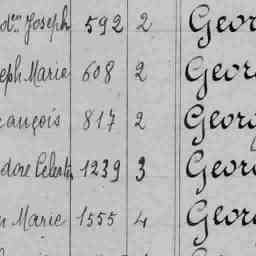 d.en Joseph 592 2 Geor
eph Marie 608 2 Geor
rançois 817 2 Georg
dore Celestin 1239 3 Geor
n Marie 1555 4 Geor